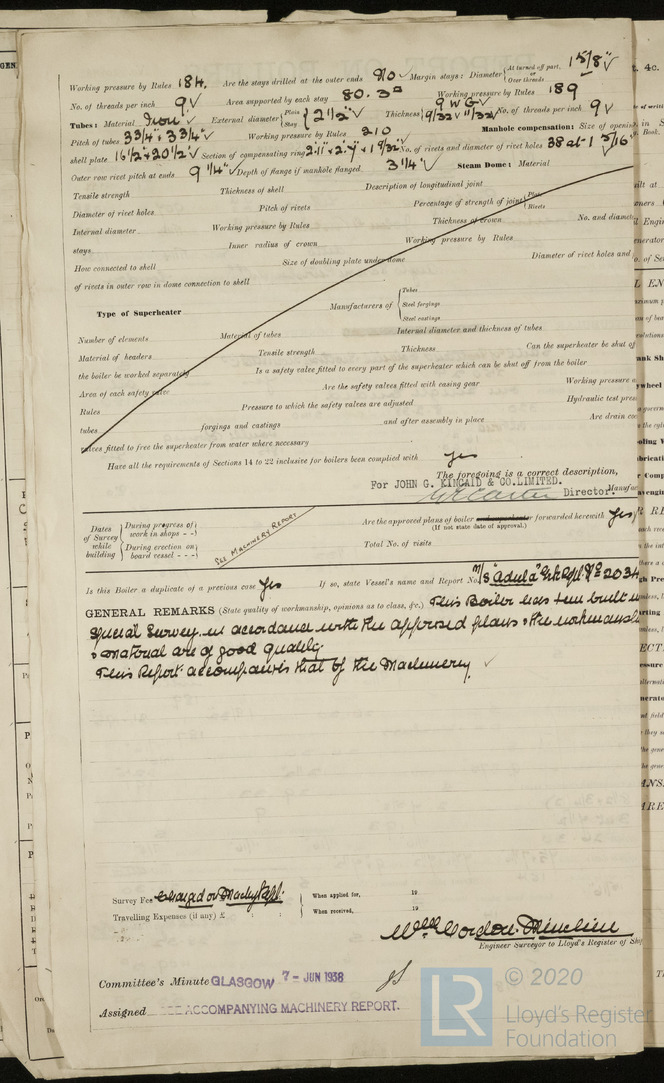 Working pressure by Rules 184. Are the stays drilled at the outer ends No Margin stays: Diameter { At turned off part, or Over threads 1 5/8"
No. of threads per inch 9. Area supported by each stay 80.3 Working pressure by Rules 189
Tubes: Material Iron External diameter { Plain Stay { 2 1/2" Thickness { 9 WG 9/32 11/32 No. of threads per inch 9
Pitch of tubes 3 3/4" x 3 3/4" Working pressure by Rules 210 Manhole compensation: Size of opening in
shell plate 16 1/2" x 20 1/2" Section of compensating ring 2'11" x 2'7" x 1 9/32" No. of rivets and diameter of rivet holes 38 at 1 5/16"
Outer row rivet pitch at ends 9 1/4" Depth of flange if manhole flanged 3 1/4" Steam Dome: Material
Tensile strength Thickness of shell Description of longitudinal joint
Diameter of rivet holes Pitch of rivets Percentage of strength of joint { Plate Rivets
Internal diameter Working pressure by Rules Thickness of crown No. and diameter
stays Inner radius of crown Working pressure by Rules
How connected to shell Size of doubling plate under dome Diameter of rivet holes and
of rivets in outer row in dome connection to shell
Type of Superheater Manufacturers of { Tubes Steel forgings Steel castings
Number of elements Material of tubes Internal diameter and thickness of tubes
Material of headers Tensile strength Thickness Can the superheater be shut off
the boiler be worked separately Is a safety valve fitted to every part of the superheater which can be shut off from the boiler
Area of each safety valve Are the safety valves fitted with easing gear Working pressure
Rules Pressure to which the safety valves are adjusted Hydraulic test
tubes forgings and castings and after assembly in place Are drain
valves fitted to free the superheater from water where necessary
Have all the requirements of Sections 14 to 22 inclusive for boilers been complied with Yes
The foregoing is a correct description,
For JOHN G. KINCAID & CO. LIMITED.
Director.
Dates of Survey while building { During progress of work in shops - - } { During erection on board vessel - - - } SEE MACHINERY REPORT
Are the approved plans of boiler forwarded herewith Yes
(If not state date of approval.)
Total No. of visits
Is this Boiler a duplicate of a previous case Yes If so, state Vessel's name and Report No. M/S "Adula" Grk Rpt. No 2034
GENERAL REMARKS (State quality of workmanship, opinions as to class, &c.) This Boiler has been built
Special Survey in accordance with the approved plans & the workmanship
& material are of good quality.
This Report accompanies that of the Machinery.
Survey Fee Charged on Machy Rpt. When applied for, 19
Travelling Expenses (if any) £ When received, 19
Wm Gordon-
Engineer Surveyor to Lloyd's Register of
Committee's Minute GLASGOW 7 - JUN 1938
Assigned SEE ACCOMPANYING MACHINERY REPORT.
LR © 2020
Lloyd's Register
Foundation